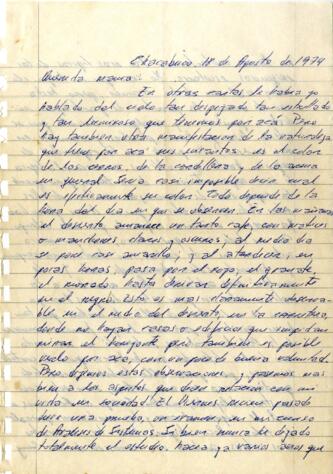 Chacabuco, 18 de Agosto de 1974
Querida mamá:
En otras cartas te había ya
hablado del cielo tan despejado tan estrellado
y tan luminoso que tenemos por acá. Pero
hay también otra manifestación de la naturaleza
que tiene por acá sus variantes: es el color
de los cerros, de la cordillera y de la arena
en general. Sería casi imposible decir cual
es efectivamente su color. Todo depende de la
hora del día en que se observen. En las mañanas
el desierto amanece un tanto café, con matices
o manchones claros y oscuros; al medio día
se pone casi amarillo; y al atardecer, en
pocas horas, pasa por el rojo, el granate,
el morado hasta derivar definitivamente
en el negro. Esto es mas claramente observa-
ble en el medio del desierto, en la carretera,
donde no hayan casas o edificios que impidan
mirar el horizonte pero también es posible
verlo por acá, con un poco de buena voluntad.
Pero dejemos estas observaciones y pasemos mas
bien a los aspectos que dicen relación con mi
vida en sociedad. El Viernes recién pasado
hice una prueba, un examen, en mi curso
de Análisis de Sistemas. En buena hora he dejado
totalmente el estudio. Hacía ya varios años que